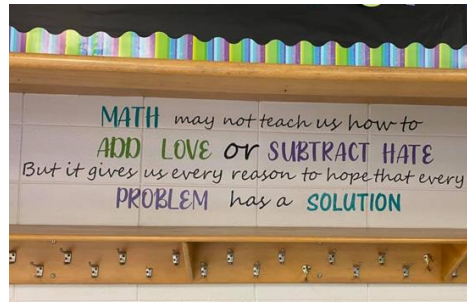 MATH may not teach us how to
ADD LOVE or SUBTRACT HATE
But it gives us every reason to hope that every
PROBLEM has a SOLUTION